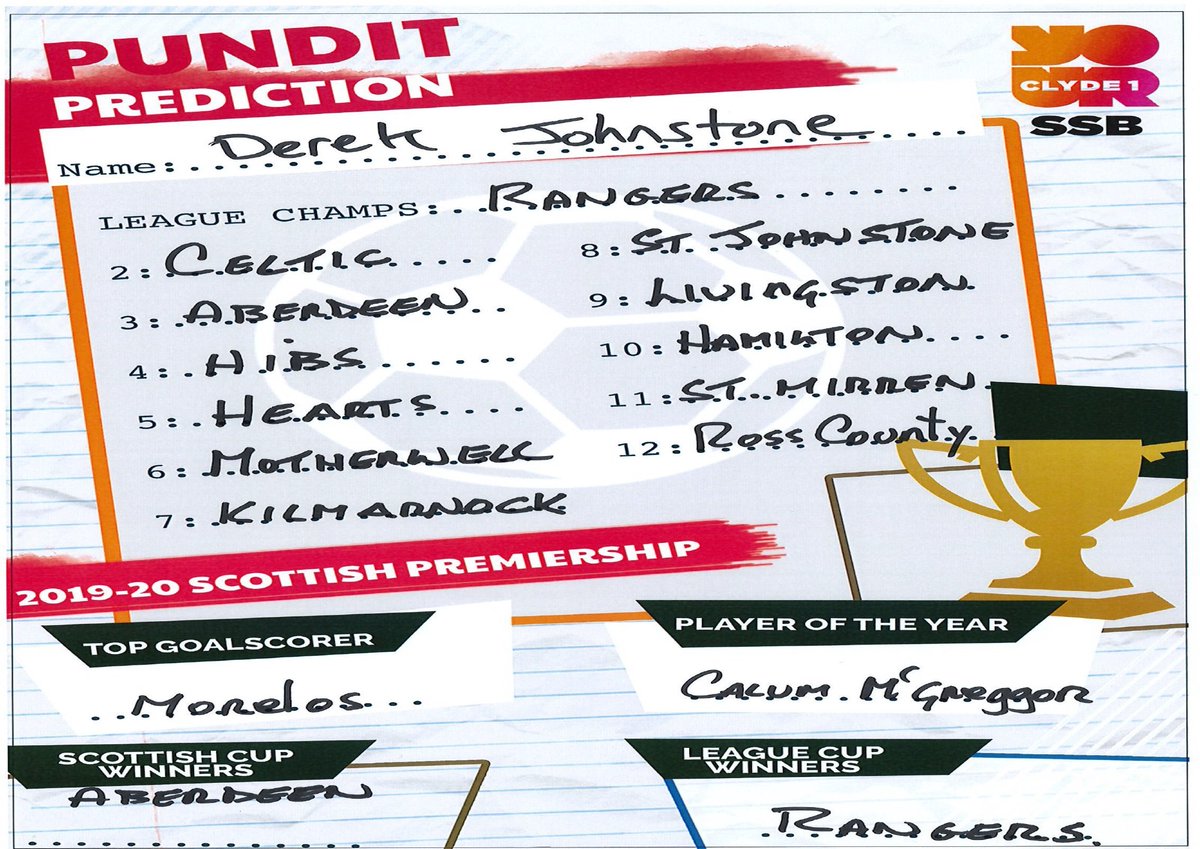 PUNDIT
PREDICTION
YO
UR
CLYDE 1
SSB
Name: Derek Johnstone
LEAGUE CHAMPS: RANGERS
2: CELTIC
3: ABERDEEN
4: HIBS
5: HEARTS
6: MOTHERWELL
7: KILMARNOCK
8: ST. JOHNSTONE
9: LIVINGSTON
10: HAMILTON
11: ST. MIRREN
12: ROSS COUNTY
2019-20 SCOTTISH PREMIERSHIP
TOP GOALSCORER
Morelos
PLAYER OF THE YEAR
CALUM McGreggor
SCOTTISH CUP
WINNERS
ABERDEEN
LEAGUE CUP
WINNERS
RANGERS